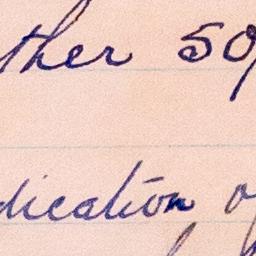 ther 50
dication of